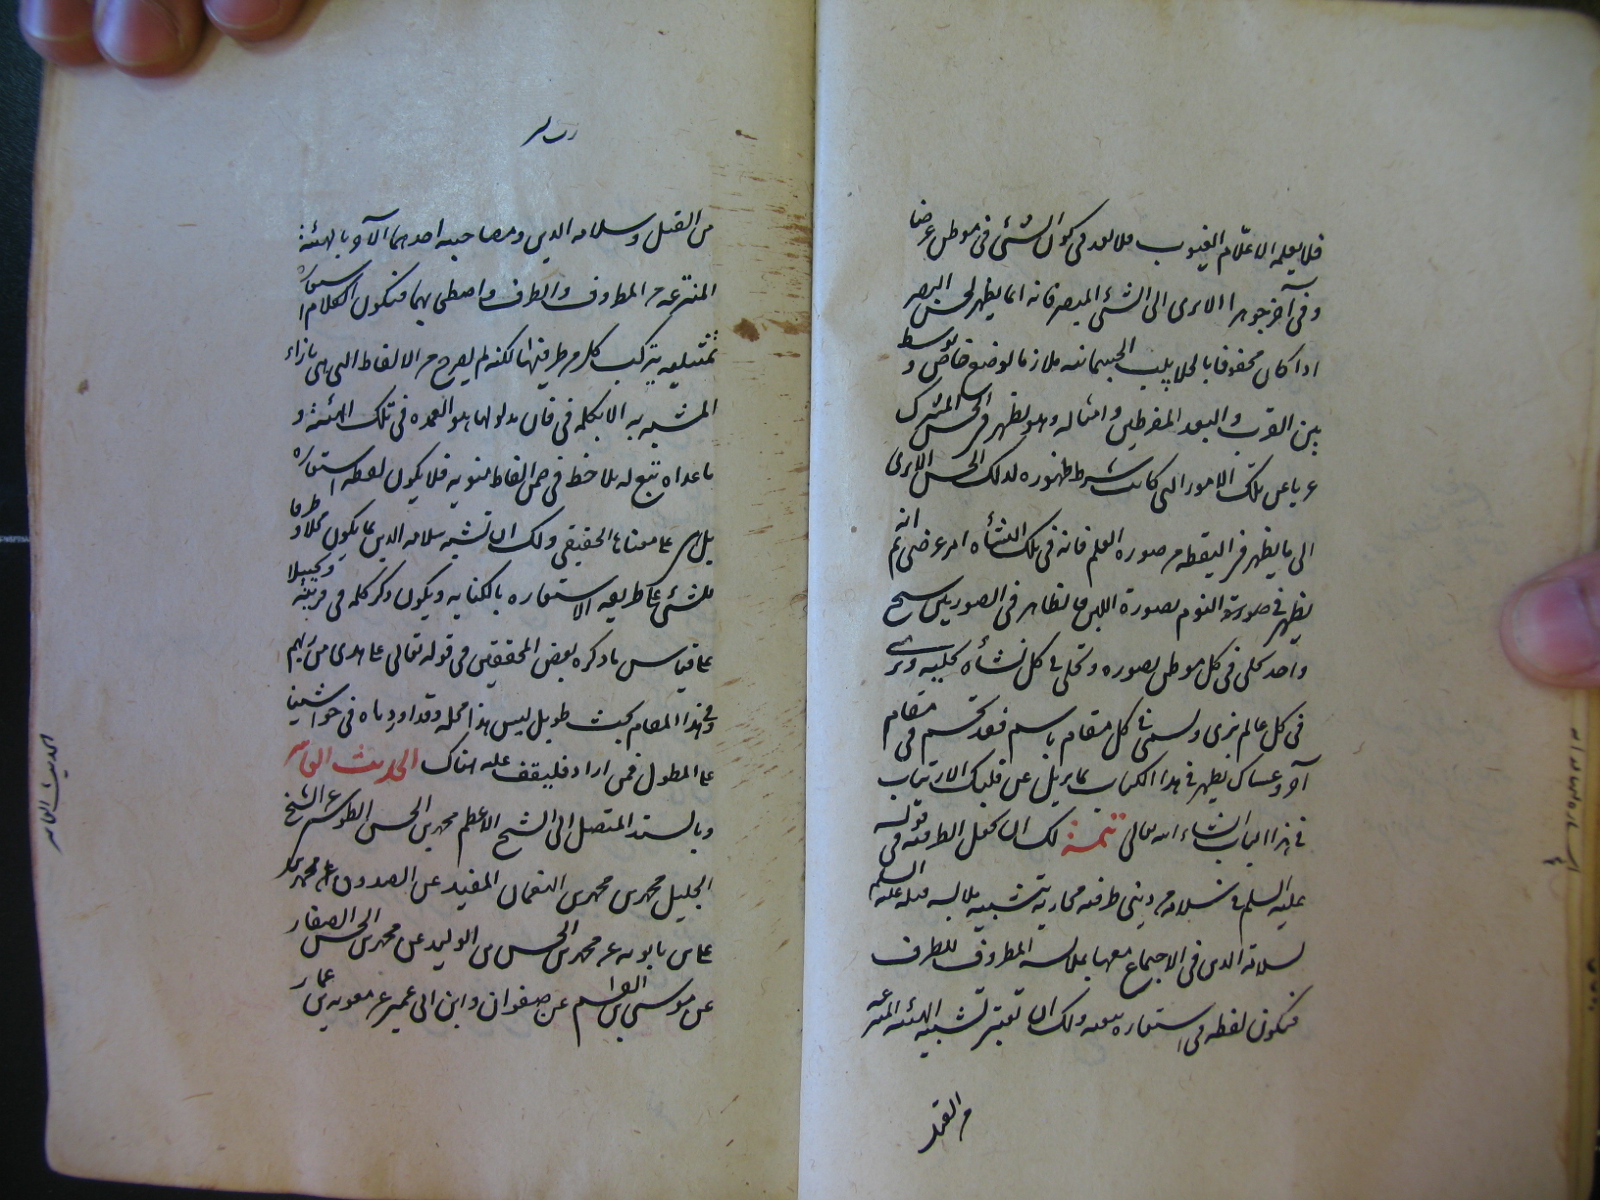 فلا يعلمه الا علّام الغيوب فلا بعد فى كون الشئ فى موطن عرضا
و فى آخر جوهرا الا ترى الى الشئ المبصر فانه انما يظهر لحس البصر
اذا كان محفوفا بالجلابيب الجسمانيه ملازما لوضع خاص و توسط
بين القرب و البعد المفرطين و امثاله و هو يظهر فى الحس المشترك
عريا عن تلك الامور التى كانت شرط ظهوره لذلك الحس الا ترى
الى ما يظهر فى اليقظه من صوره العلم فانه فى تلك النشأه امر عرضى ثم انه
يظهر فى صورة النوم بصورة اللبن فالظاهر فى الصورتين سنخ
واحد تجلى فى كل موطن بصوره و تحلى فى كل نشأه بحليه و تزيى
فى كل عالم بزى و تسمى فى كل مقام باسم فقد تجسم فى مقام
آخر و عساك يظهر فى هذا الكتاب ما يزيل عن قلبك الارتياب
فى هذا الباب انشاء الله تعالى تتمة لك ان تجعل الظرفيه فى قوله
عليه السلم فى سلامه من دينى ظرفيه مجازيه بتشبيه ملابسه قتله عليه السلم
لسلامه الدين فى الاجتماع معها بملابسه المظروف للظرف
فتكون لفظه فى استعاره تبعيه و لك ان تعتبر تشبيه الهيئه المنتزعه
من القتل
من القتل و سلامه الدين و مصاحبه احدهما الآخر بالهيئة
المنتزعه من المظروف و الظرف و اصطحابهما فتكون الكلام استعاره
تمثيليه بتركب كل من طرفيها لكنه لم يصرح من الالفاظ التى هى بازاء
المشبه به الا بكلمه فى فان مدلولها هو العمده فى تلك الهيئة و
ما عداه تبع له يلاحظ فى ضمن الفاظ منويه فلا يكون لفظه فى استعاره
بل هى على معناها الحقيقى و لك ان تشبه سلامه الدين بما يكون محلا و ظرفا
للشئ على طريقه الاستعاره بالكنايه و يكون ذكر كلمه فى قرينة و تخييلا
على قياس ما ذكره بعض المحققين فى قوله تعالى على هدى من ربهم
و فى هذا المقام بحث طويل ليس هذا محله و قد اوردناه فى حواشينا
على المطول فمن اراد فليقف عليه هناك الحديث الخامس
و بالسند المتصل الى الشيخ الاعظم محمد بن الحسن الطوسى عن الشيخ
الجليل محمد بن محمد بن النعمان المفيد عن الصدوق محمد بن
على بن بابويه عن محمد بن الحسن بن الوليد عن محمد بن الحسن الصفار
عن موسى بن القاسم عن صفوان و ابن ابى عمير عن معويه بن عمار
الحديث الخامس